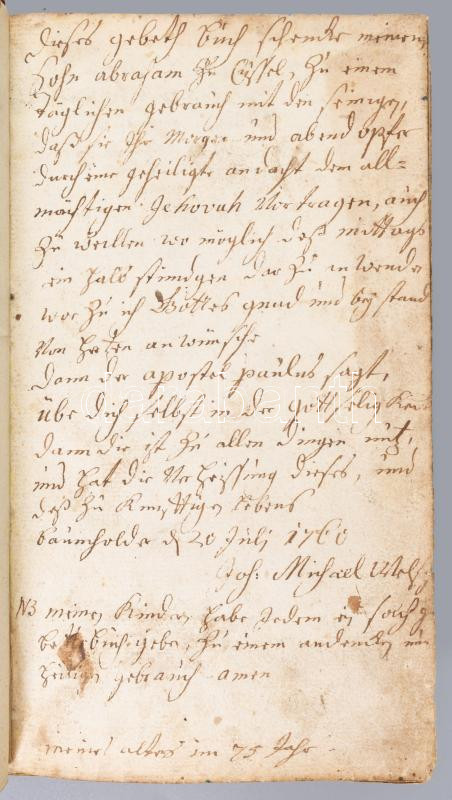 dieses gebeth buch schencke meinem
sohn abraham zu Cassel, zu einem
täglichen gebrauch mit den seinigen,
daß sie Ihr Morgen und abend opfer
durch eine geheiligte andacht dem all=
mächtigen Jehovah Vortragen, auch
zu weillen wo möglich deß mittags
ein halb stündgen dar zu anwenden
wor zu ich Gottes gnad und bey stand
Von Hertzen anwünsche
dann der apostel paulus sagt,
übe dich selbst in der gottseligkeit
dann die ist zu allen dingen nutz,
und hat die Verheissung dieses, und
deß zu Künfftigen lebens
baumholder d 20 Julj 1760
Joh: Michael
NB meinen Kindern habe Jedem ein solch
bettbuch gebe, zu einem andencken und
heiligen gebrauch amen
meines alters im 75 Jahr